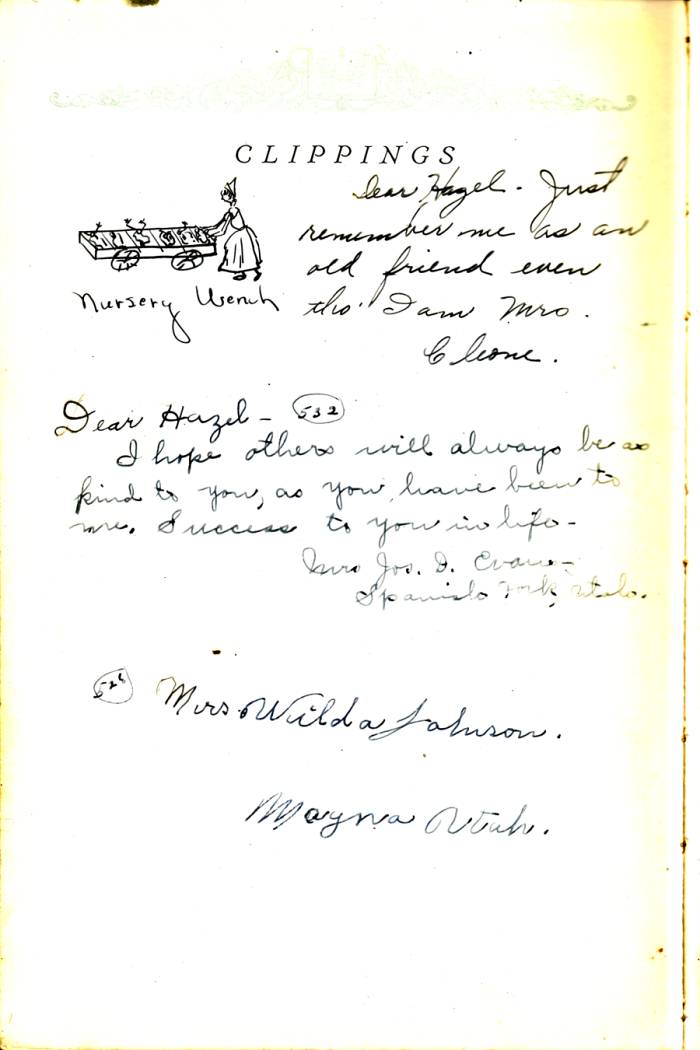 CLIPPINGS
Dear Hazel - Just
remember me as an
old friend even
tho' I am Mrs.
Cleone.
Nursery Wench
Dear Hazel - 532
I hope others will always be as
kind to you, as you have been to
me. Success to you in life -
Mrs Jos. D. Evans -
Spanish Fork, Utah.
528
Mrs. Wilda Johnson.
Magna Utah.